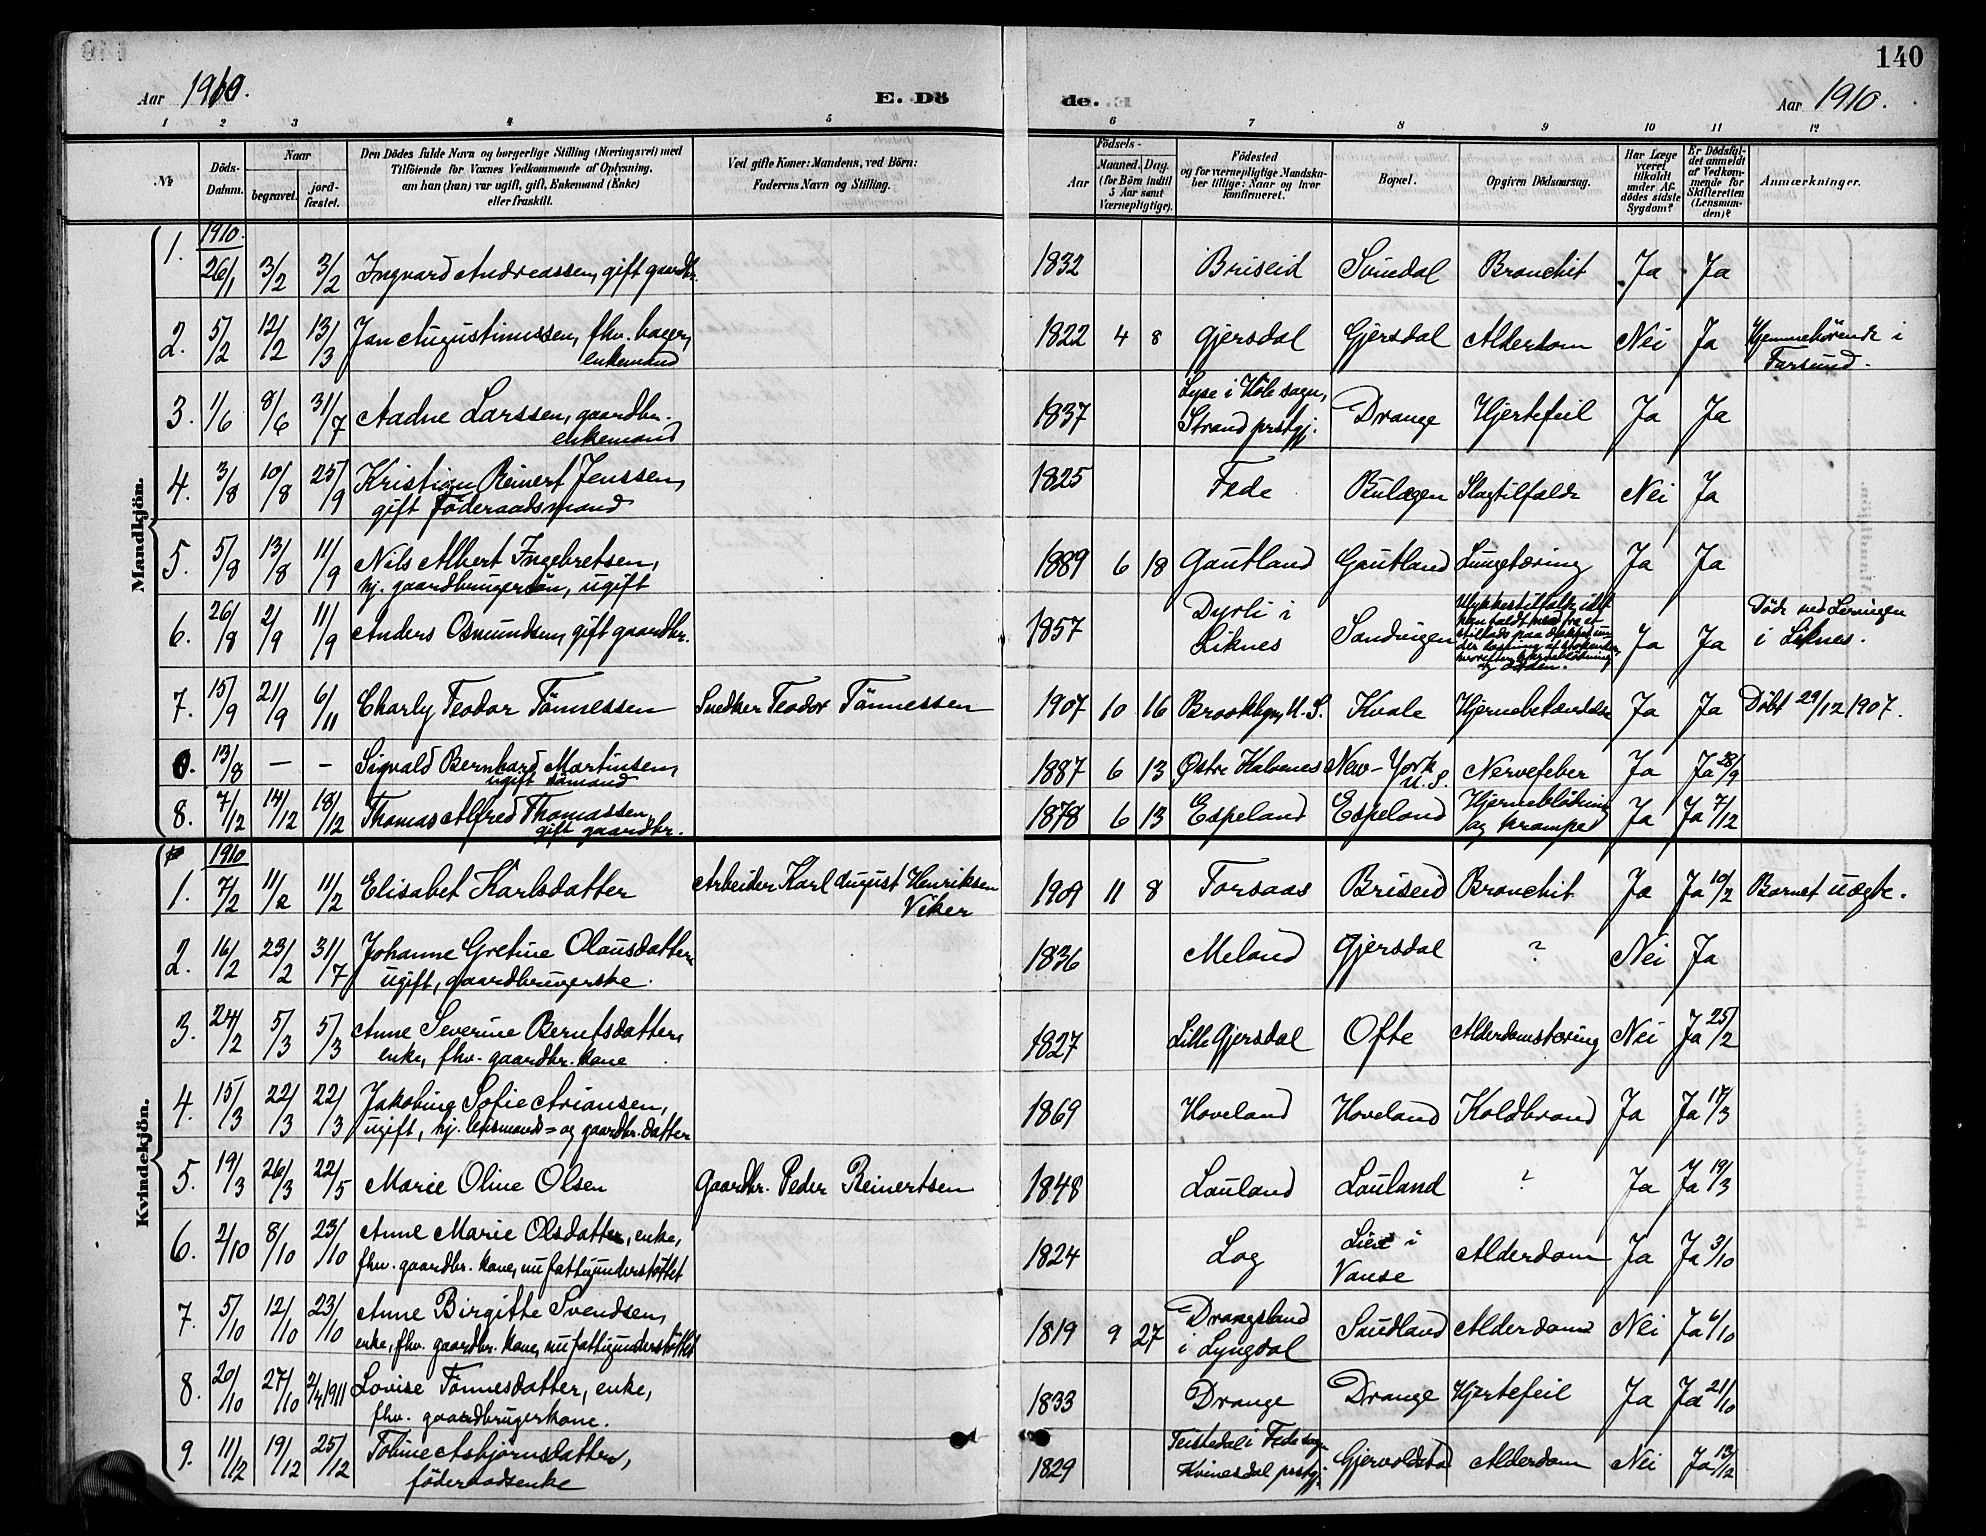 140
Aar 1910.
E. Dö de.
Aar 1910.
1 2 3 4 5 6 7 8 9 10 11 12
№
Döds-Datum.
Naar
begravet.
jord-fæstet.
Den Dödes fulde Navn og borgerlige Stilling (Næringsvei) med
Tilföiende for Voxnes Vedkommende af Oplysning,
om han (hun) var ugift, gift, Enkemand (Enke)
eller fraskilt.
Ved gifte Koner: Mandens, ved Börn:
Faderens Navn og Stilling.
Födsels-
Aar
Maaned. Dag.
(for Börn indtil
5 Aar samt
Værnepligtige).
Födested
og for værnepligtige Mandska-
ber tillige: Naar og hvor
konfirmeret.
Bopæl.
Opgiven Dödsaarsag.
Har Læge
været
tilkaldt
under Af-
dödes sidste
Sygdom?
Er Dödsfal-
det anmeldt
af Vedkom-
mende for
Skifteretten
(Lensman-
den)?
Anmærkninger.
Mandkjön.
1910.
1. 26/1 3/2 3/2 Ingvard Andreassen, gift gaardbr. 1832 Briseid Sundal Bronchit Ja Ja
2. 5/2 12/2 13/3 Jan Augustinussen, fhv. bager, 1822 4 8 Gjersdal Gjersdal Alderdom Nei Ja Hjemmehörende i
enkemand Farsund.
3. 1/6 8/6 31/7 Aadne Larssen, gaardbr. 1837 Lyse i Höle sogn, Drange Hjertefeil Ja Ja
enkemand Strand prstgj.
4. 3/8 10/8 25/9 Kristian Reinert Jenssen, 1825 Fede Bulægen Slagtilfælde Nei Ja
gift föderaadsmand
5. 5/8 13/8 11/9 Nils Albert Ingebretsen, 1889 6 18 Gautland Gautland Lungetæring Ja Ja
hj. gaardbrugersön, ugift
6. 26/8 2/9 11/9 Anders Osmundsen, gift gaardbr. 1857 Dyrli i Sandvigen Ulykkestilfælde, idet Ja Ja Döde ved
Liknes han faldt ned fra et i Liknes.
7. 15/9 21/9 6/11 Charly Teodor Tönnessen Snedker Teodor Tönnessen 1907 10 16 Brooklyn, U. S. Kvale Hjernebetændelse Ja Ja Döbt 29/12 1907.
0. 13/8 — — Sigvald Bernhard Martinsen, 1887 6 13 Østre Kalvenes New-York Nervefeber Ja Ja 28/9
ugift sömand U. S.
8. 7/12 14/12 18/12 Thomas Alfred Thomassen, 1878 6 13 Espeland Espeland Hjerneblödning Ja Ja 7/12
gift gaardbr. og krampe
Kvindekjön.
1910
1. 7/2 11/2 11/2 Elisabet Karlsdatter Arbeider Karl August Henriksen 1909 11 8 Torsaas Briseid Bronchit Ja Ja 10/2 Barnet uægte.
Viker
2. 16/2 23/2 31/7 Johanne Gretine Olausdatter, 1836 Meland Gjersdal ? Nei Ja
ugift, gaardbrugerske.
3. 24/2 5/3 5/3 Anne Severine Berntsdatter, 1827 Lille Gjersdal Ofte Alderdomstæring Nei Ja 25/2
enke, fhv. gaardbr. kone
4. 15/3 22/3 22/3 Jakobine Sofie Ariansen, 1869 Hoveland Hoveland Koldbrand Ja Ja 17/3
ugift, hj. lensmands= og gaardbr. datter
5. 19/3 26/3 22/5 Marie Oline Olsen Gaardbr. Peder Reinertsen 1848 Lauland Lauland ? Ja Ja 19/3
6. 2/10 8/10 23/10 Anne Marie Olsdatter, enke, 1824 Log Lien i Alderdom Ja Ja 3/10
fhv. gaardbr. kone, nu fattigunderstöttet Vanse
7. 5/10 12/10 23/10 Anne Birgitte Svendsen, 1819 9 27 Drangsland Saudland Alderdom Nei Ja 6/10
enke, fhv. gaardbr. kone, nu fattigunderstöttet i Lyngdal
8. 20/10 27/10 2/4 1911 Lovise Tönnesdatter, enke, 1833 Drange Drange Hjertefeil Ja Ja 21/10
fhv. gaardbrugerkone.
9. 11/12 19/12 25/12 Tobine Asbjörnsdatter, 1829 Teistedal i Fede sogn Gjervoldstad Alderdom Nei Ja 13/12
föderaadsenke Kvinesdal prstgj.